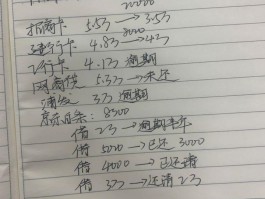 20000
招商卡 5.5万 → 3.5万
8000
建行卡 4.8万 → 4万
行卡 4.1万 逾期
网商贷 5.3万 → 未还
浦发 3万 逾期
京东白条: 8300
借 2万 → 逾期半年
借 5000 → 已还 3000
借 4000 → 已还清
借 3万 → 还清 2万